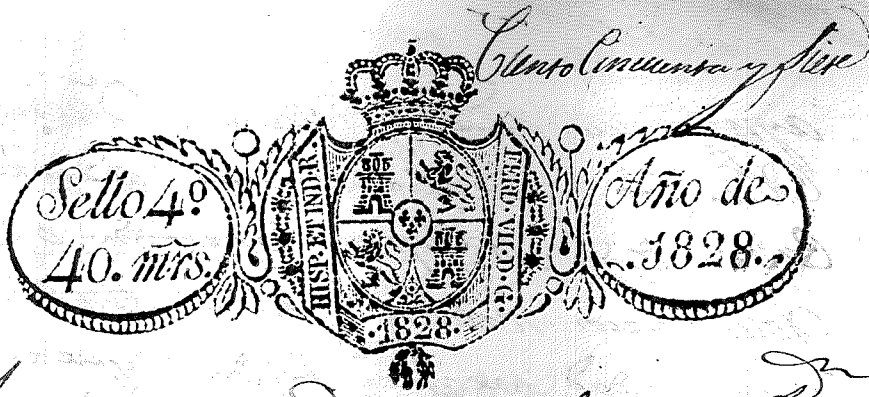 Ciento Cincuenta y siete
Sello 4º
40. mrs.
HISP. ET IND. R.
FERD. VII. D. G.
·1828·
Año de
.1828.